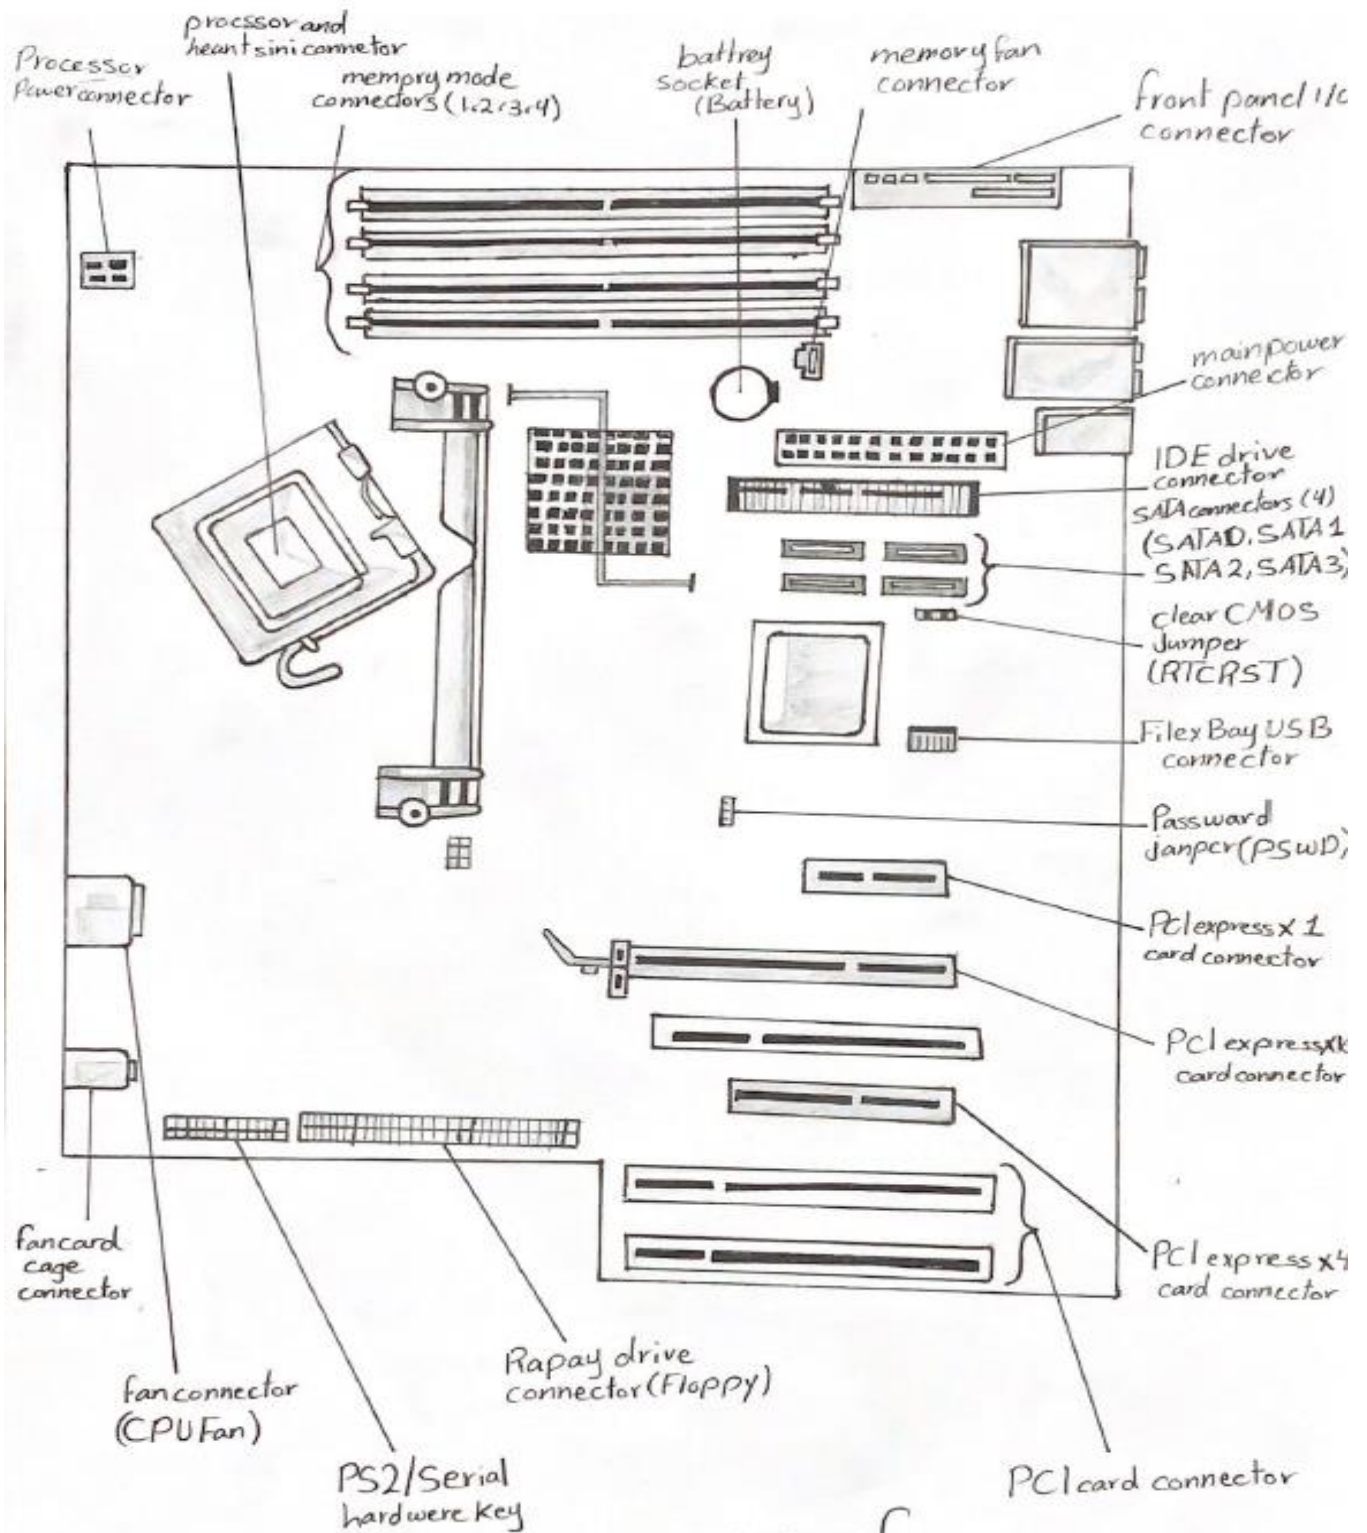 procssor and
heantsini connetor
Processor
Power connector
memory mode
connectors (1.2.3.4)
battrey
socket
(Battery)
memory fan
connector
front panel I/O
connector
main power
connector
IDE drive
connector
SATA connectors (4)
(SATAD, SATA1
SATA2, SATA3)
clear CMOS
Jumper
(RTCRST)
Filex Bay USB
connector
Passward
janper (PSWD)
PCI express x 1
card connector
PCI express
card connector
PCI express x4
card connector
fan card
cage
connector
fan connector
(CPU Fan)
Rapay drive
connector (Floppy)
PS2/Serial
hardwere key
PCI card connector